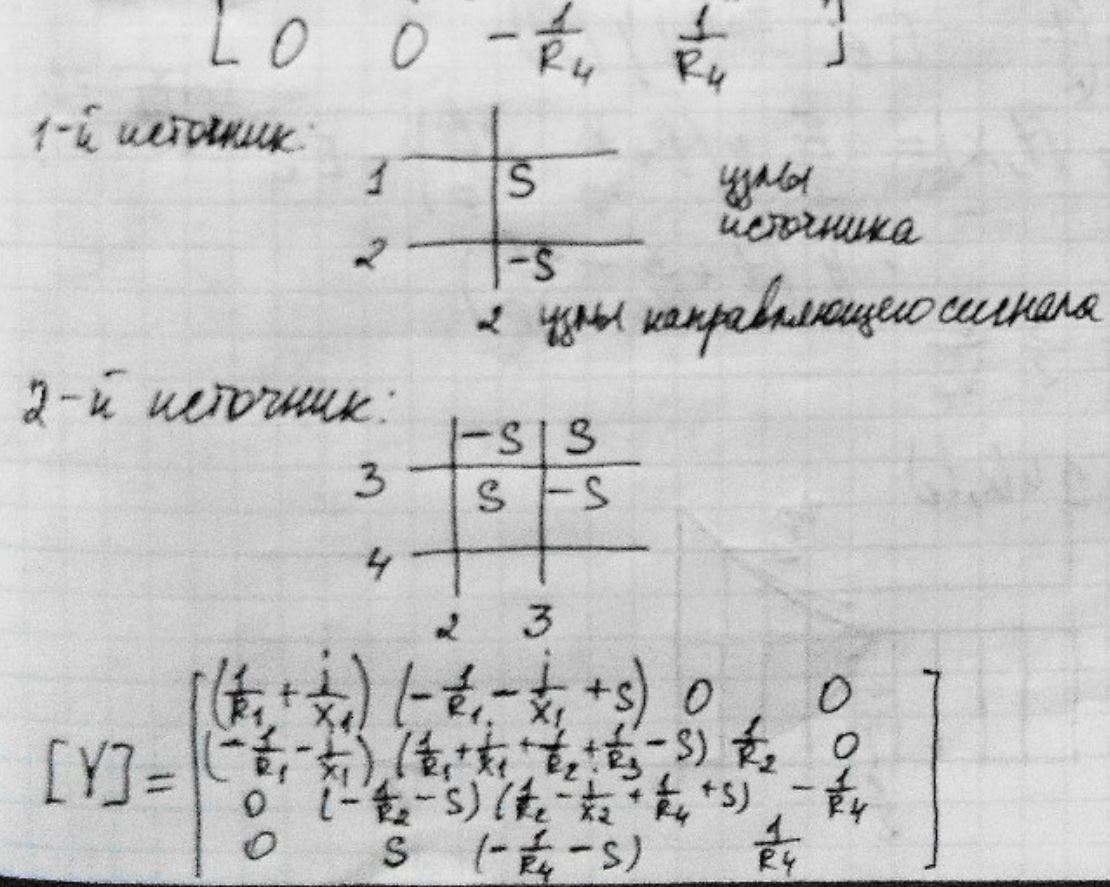 [ 0 0 - 1/R₄ 1/R₄ ]
1-й источник:
1 S
узлы
источника
2 -S
2 узлы направляющего сигнала
2-й источник:
-S S
3
S -S
4
2 3
[Y] = [ (1/R₁ + j/X₁) (- 1/R₁ - j/X₁ + S) 0 0
(- 1/R₁ - j/X₁) (1/R₁ + j/X₁ + 1/R₂ + 1/R₃ - S) 1/R₂ 0
0 (- 1/R₂ - S) (1/R₂ - j/X₂ + 1/R₄ + S) - 1/R₄
0 S (- 1/R₄ - S) 1/R₄ ]